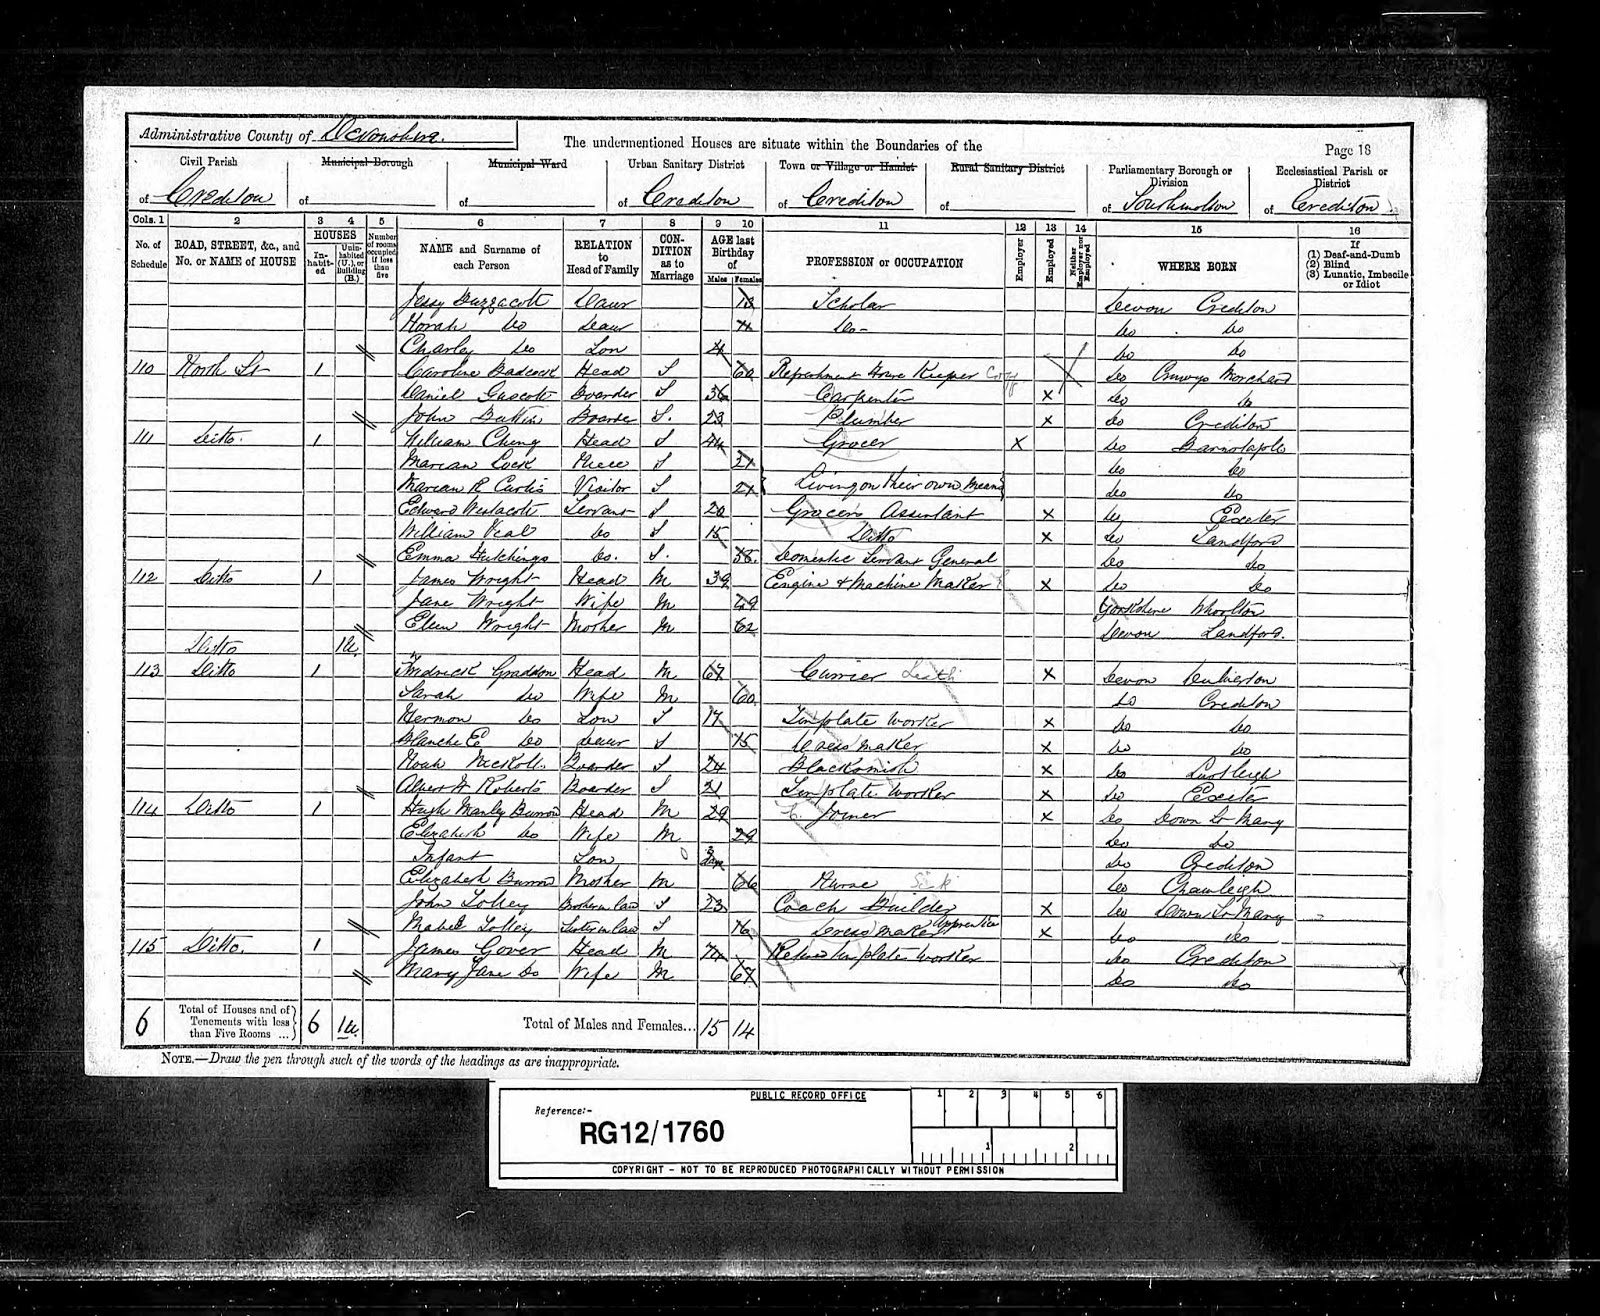 Administrative County of Devonshire
The undermentioned Houses are situate within the Boundaries of the
Page 18
Civil Parish of Crediton
Municipal Borough of
Municipal Ward of
Urban Sanitary District of Crediton
Town or Village or Hamlet of Crediton
Rural Sanitary District of
Parliamentary Borough or Division of Southmolton
Ecclesiastical Parish or District of Crediton
Cols. 1 2 3 4 5 6 7 8 9 10 11 12 13 14 15 16
No. of Schedule
ROAD, STREET, &c., and No. or NAME of HOUSE
HOUSES
Inhabited
Uninhabited (U.), or Building (B.)
Number of rooms occupied if less than five
NAME and Surname of each Person
RELATION to Head of Family
CONDITION as to Marriage
AGE last Birthday of
Males Females
PROFESSION or OCCUPATION
Employer
Employed
Neither Employer nor Employed
WHERE BORN
If
(1) Deaf-and-Dumb
(2) Blind
(3) Lunatic, Imbecile or Idiot
Jessy Buzzacott Daur 13 Scholar Devon Crediton
Norah Do Daur Do Do Do
Charley Do Son 4 Do Do
110 North St 1 Caroline Badcock Head S 60 Refreshment House Keeper Do Cruwys Morchard
Daniel Gascott Boarder S 36 Carpenter x Do Do
John Boarder S. 23 Plumber x Do Crediton
111 Ditto 1 William Ching Head S 44 Grocer x Do Barnstaple
Marian Cock Niece S 21 Do Do
Marian R Curtis Visitor S 21 Living on their own Means Do Do
Edward Westacott Servant S 20 Grocers Assistant x Do Exeter
William Veal Do S 15 Ditto x Do Sandford
Emma Hutchings Do. S. Domestic Servant General Do Do
112 Ditto 1 James Wright Head M 39 Engine & Machine Maker x Do Do
Jane Wright Wife M Yorkshire Whorlton
Ellen Wright Mother M 62 Devon Sandford.
Ditto 1U.
113 Ditto 1 Fredrick Graddon Head M 67 Currier x Devon Dulverton
Sarah Do Wife M 60 Do Crediton
Hermon Do Son S 17 Tinplate Worker x Do Do
Blanche E Do Daur S 15 Dressmaker x Do Do
Noah Boarder S 24 Blacksmith x Do Lustleigh
Albert W Roberts Boarder S 21 Tinplate Worker x Do Exeter
114 Ditto 1 Hugh Manley Burrow Head M 29 Joiner x Do Down St Mary
Elizabeth Do Wife M 29 Do Do
Infant Son Days Do Crediton
Elizabeth Burrow Mother M 66 Nurse Do Chawleigh
John Tolley Brother in law S 23 Coach Builder x Do Down St Mary
Mabel Tolley Sister in law S 16 Dressmaker Apprentice x Do Do
115 Ditto. 1 James Gover Head M 74 Retired tinplate worker Do Crediton
Mary Jane Do Wife M 67 Do Do
6 Total of Houses and of Tenements with less than Five Rooms ... 6 1U. Total of Males and Females... 15 14
NOTE.—Draw the pen through such of the words of the headings as are inappropriate.
PUBLIC RECORD OFFICE
1 2 3 4 5 6
Reference:-
RG12/1760
1 2
COPYRIGHT - NOT TO BE REPRODUCED PHOTOGRAPHICALLY WITHOUT PERMISSION